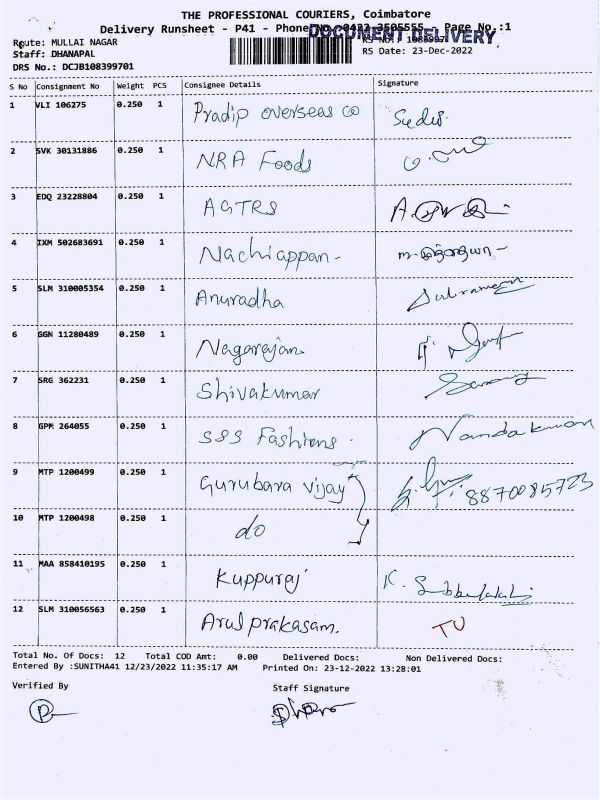 THE PROFESSIONAL COURIERS, Coimbatore
Delivery Runsheet - P41 - Phone No.:0422-3505555 - Page No.:1
DOCUMENT DELIVERY
Route: MULLAI NAGAR
Staff: DHANAPAL RS Date: 23-Dec-2022
DRS No.: DCJB108399701
S No Consignment No Weight PCS Consignee Details Signature
1 VLI 106275 0.250 1 Pradip overseas co
2 SVK 30131886 0.250 1 NRA Foods
3 EDQ 23228804 0.250 1 AGTRS
4 IXM 502683691 0.250 1 Nachiappan-
5 SLM 310005354 0.250 1 Anuradha
6 GGN 11280489 0.250 1 Nagarajan
7 SRG 362231 0.250 1 Shivakumar
8 GPM 264055 0.250 1 SSS Fashions. Nandakumar
9 MTP 1200499 0.250 1 Gurubara vijay 8870085723
10 MTP 1200498 0.250 1 do
11 MAA 858410195 0.250 1 Kuppuraj K.
12 SLM 310056563 0.250 1 Arulprakasam. TU
Total No. Of Docs: 12 Total COD Amt: 0.00 Delivered Docs: Non Delivered Docs:
Entered By :SUNITHA41 12/23/2022 11:35:17 AM Printed On: 23-12-2022 13:28:01
Verified By Staff Signature